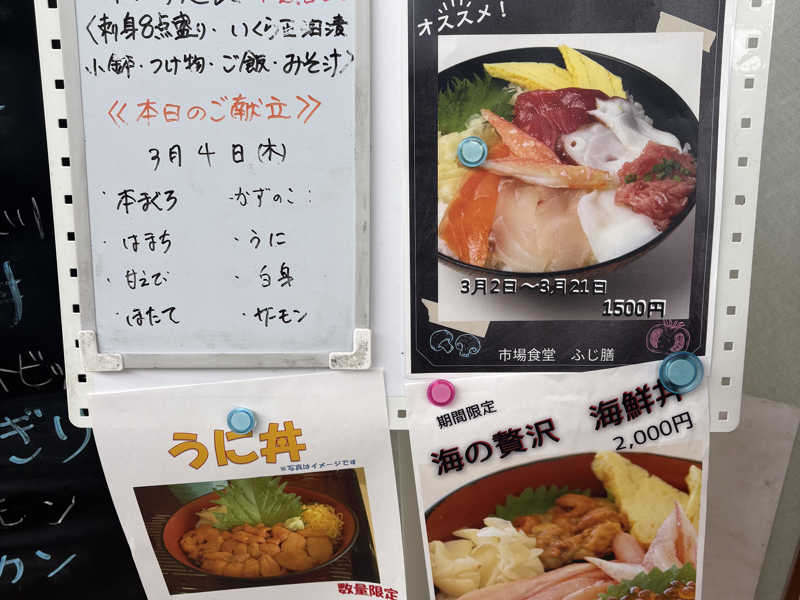 〈刺身8点盛り・いくら正油漬
小鉢・つけ物・ご飯・みそ汁〉
《本日のご献立》
3月4日(木)
・本まぐろ ・かずのこ
・はまち ・うに
・甘えび ・白身
・ほたて ・サーモン
オススメ!
3月2日〜3月21日
1500円
市場食堂 ふじ膳
うに丼
※写真はイメージです
数量限定
期間限定
海の贅沢 海鮮丼
2,000円